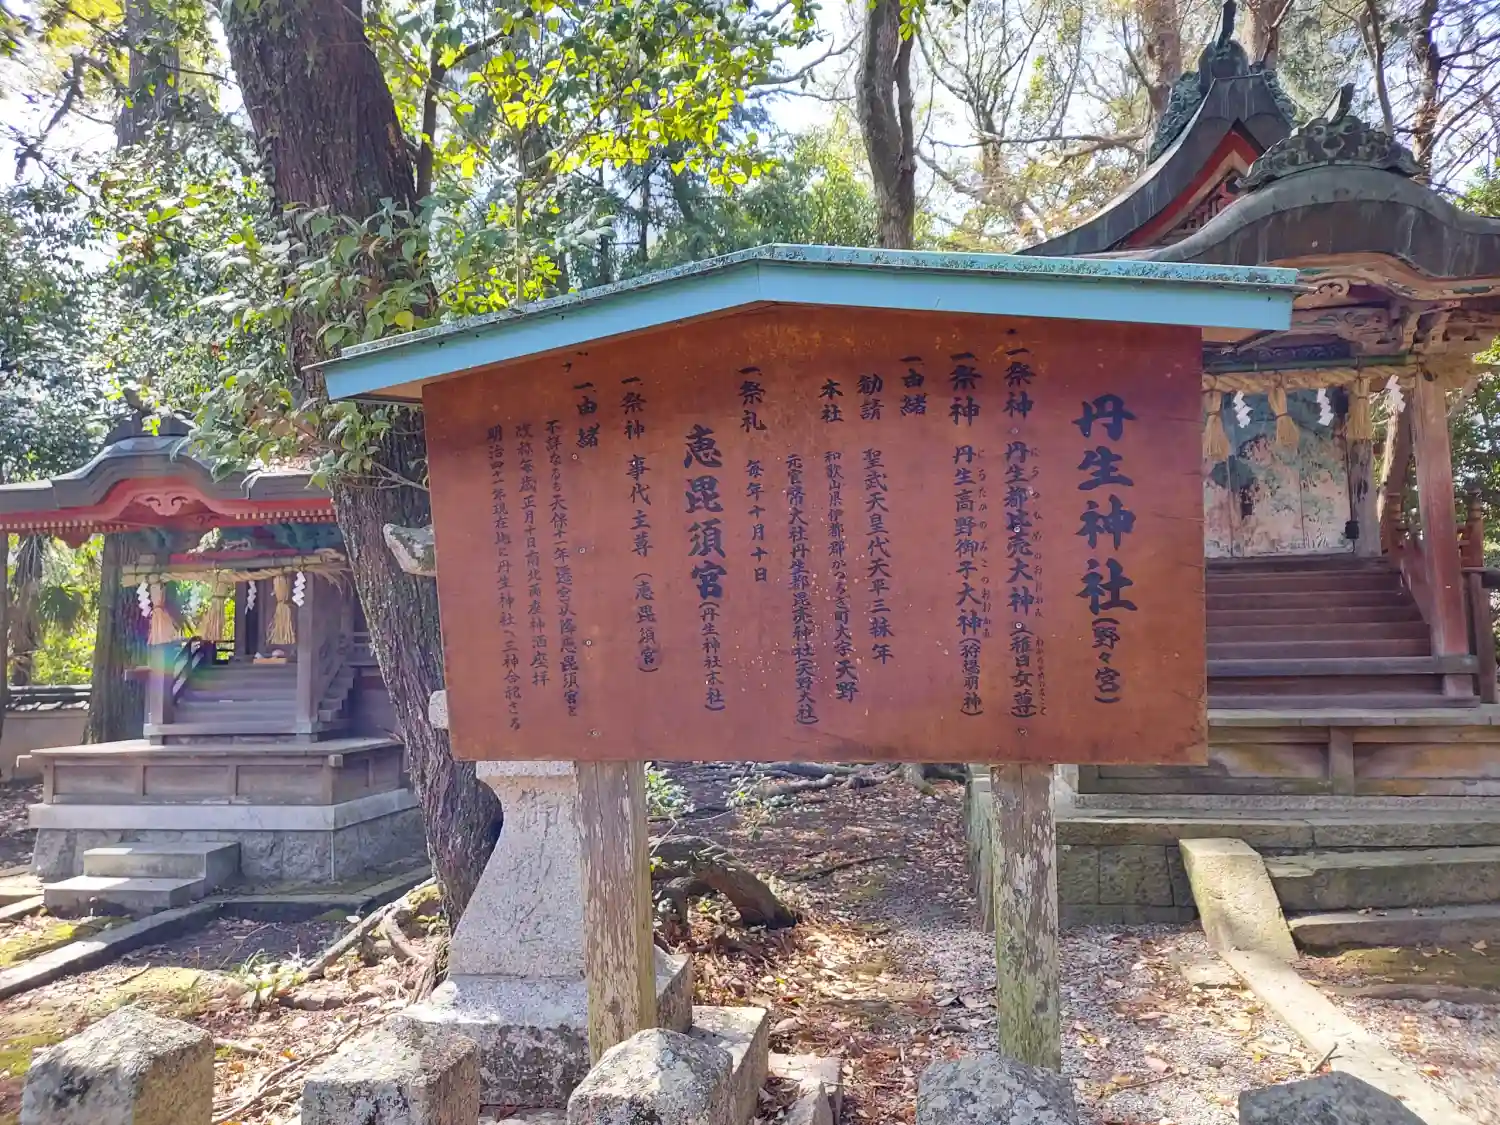 丹生神社(野々宮)
一祭神 丹生都比売大神(稚日女尊)
にうつひめのおおかみ わかひるめのみこと
一祭神 丹生高野御子大神(狩場明神)
にうたかのみこのおおかみ
一由緒
勧請 聖武天皇代天平三辛未年
本社 和歌山県伊都郡かつらぎ町大字天野
元官幣大社丹生都比売神社(天野大社)
一祭礼 毎年十月十日
恵毘須宮(丹生神社末社)
一祭神 事代主尊(恵毘須宮)
一由緒
不詳なるも天保十一年遷宮以降恵毘須宮と
改称毎歳正月十日南北両座神酒座拝
明治四十一年現在地に丹生神社へ三神合祀さる
御神燈